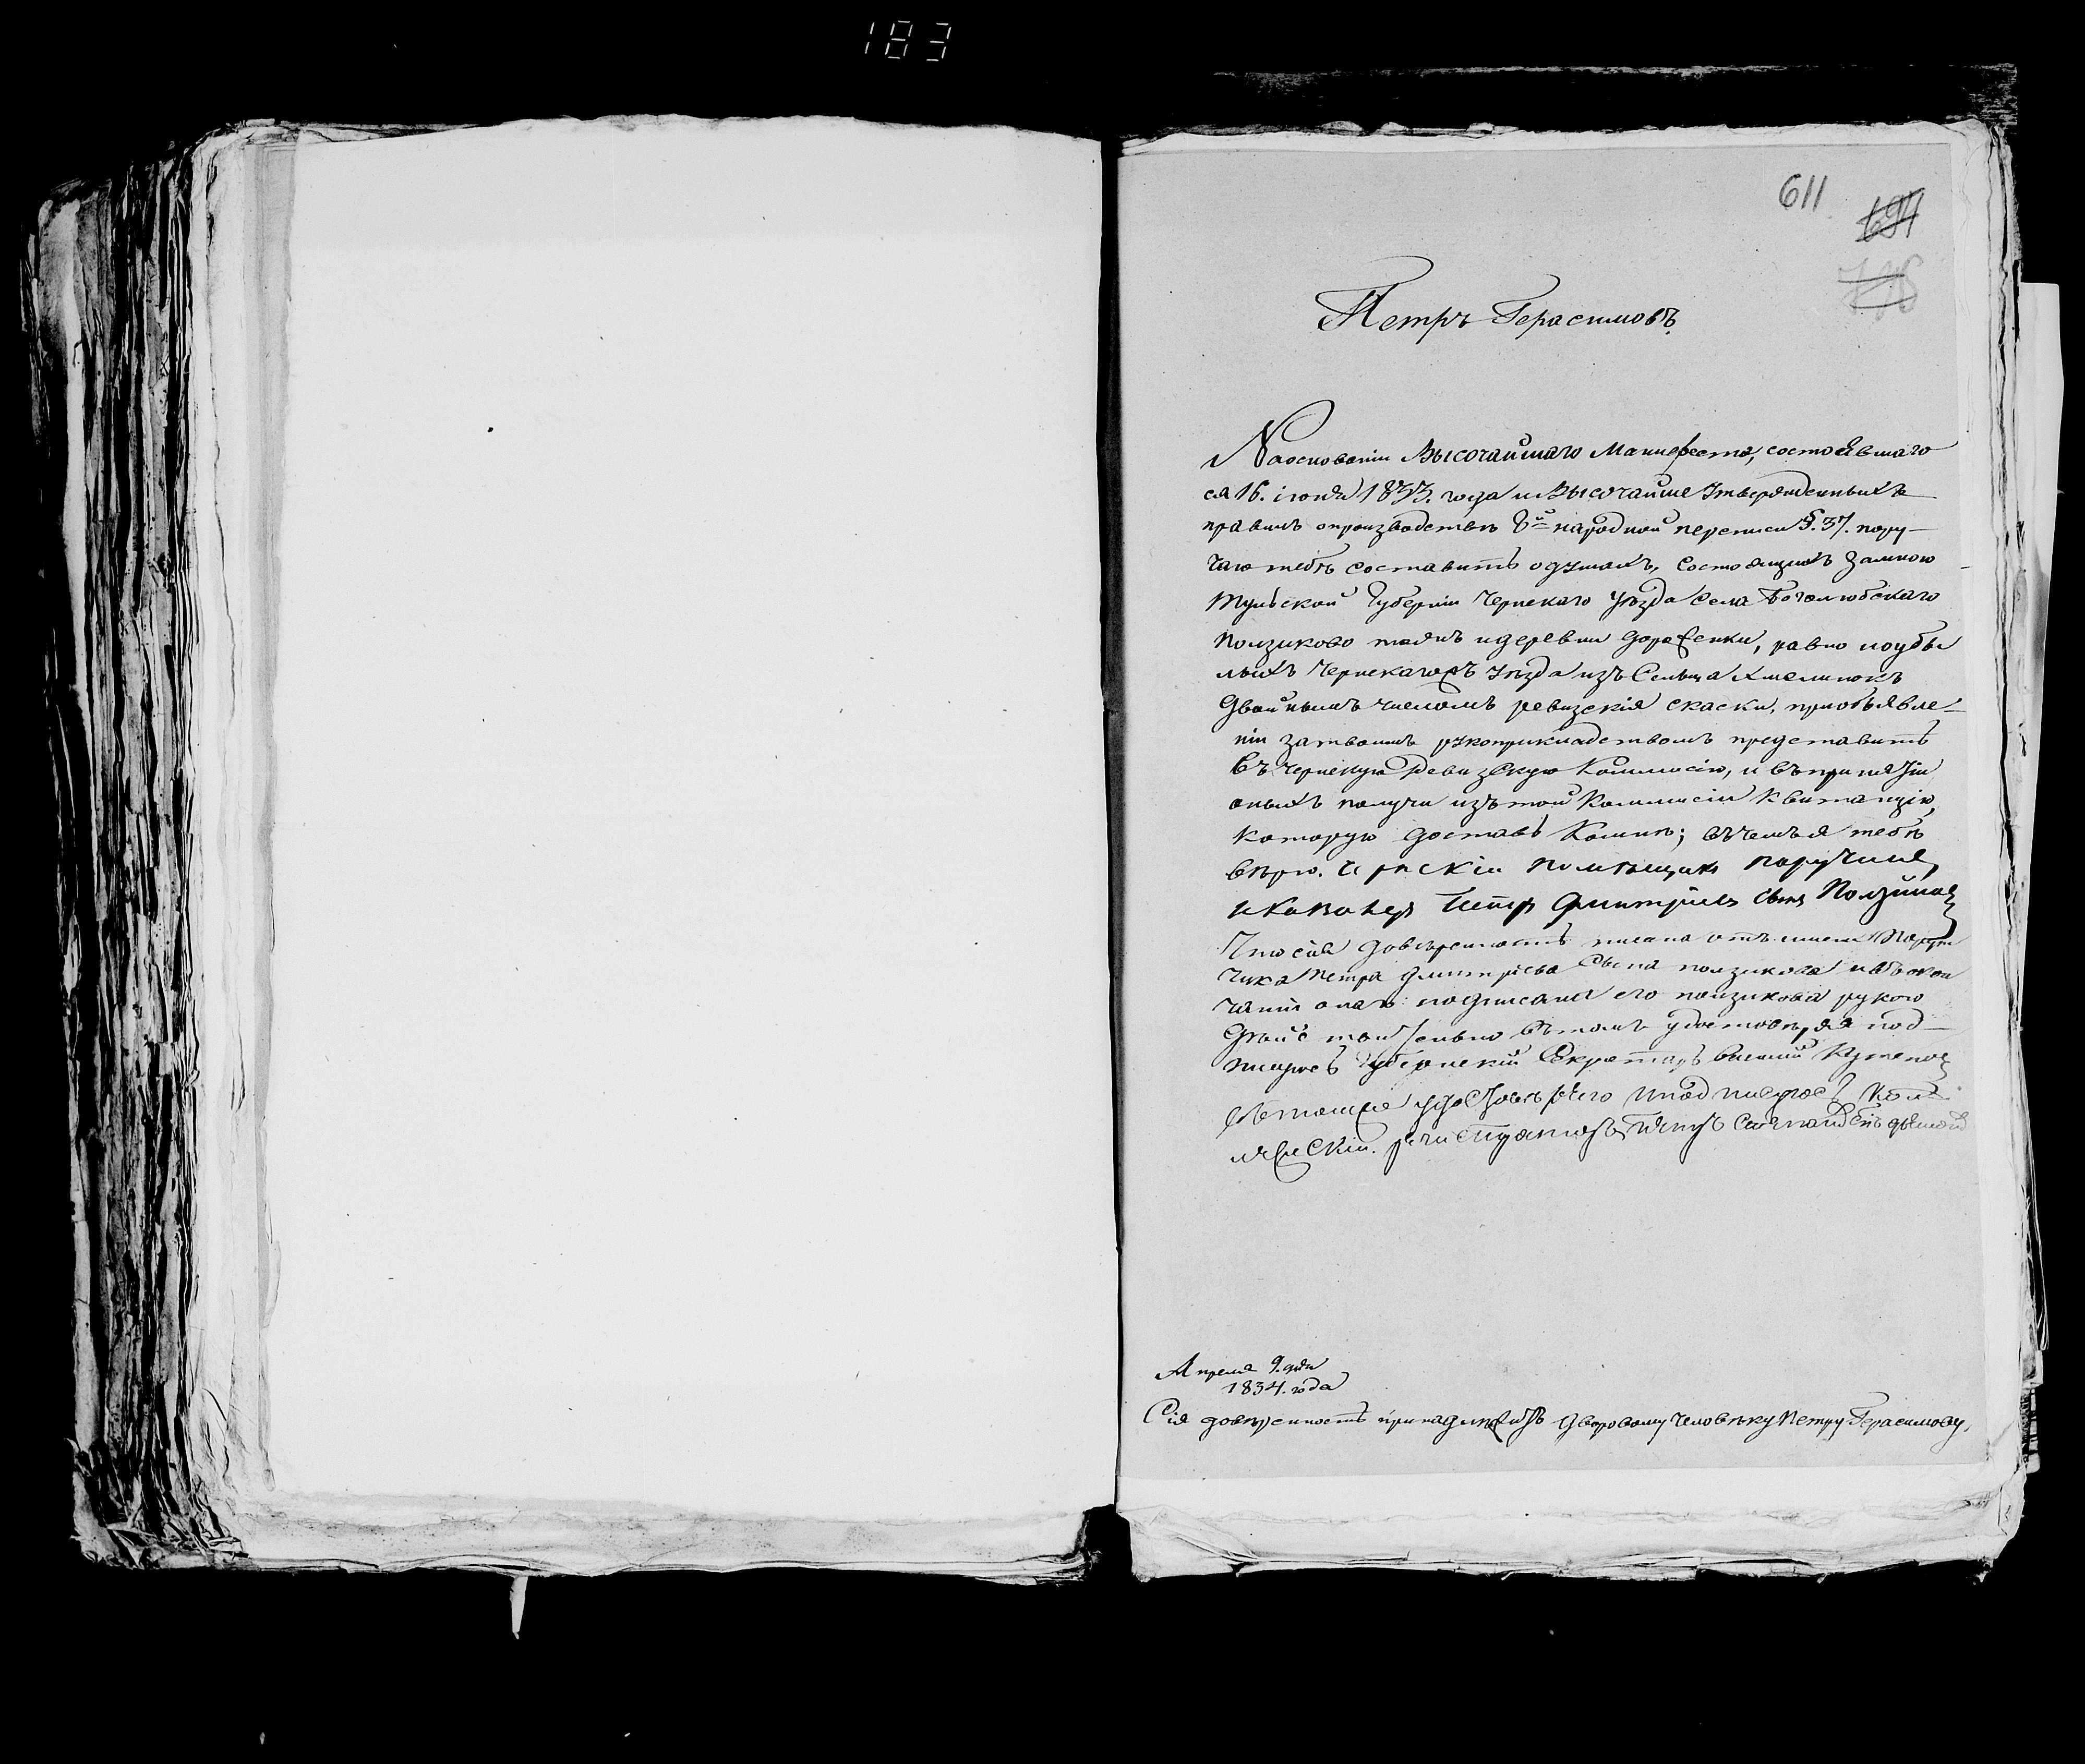 183
611
Петръ Герасимовъ.
На основаніи Высочайшаго Манифеста, состоявшаго
ся 16. іюня 1833. года и Высочайше утвержденныхъ
правилъ о производствѣ 8й народной переписи §. 37. пору-
чаю тебѣ составить о душахъ, состоящихъ за мною
Тульской Губерніи Чернскаго уѣзда Села Боголюбскаго
Ползиково тожъ и деревни Доробенки, равно и о убы
лыхъ Чернскагожъ уѣзда изъ Сельца Хмелинокъ
двойнымъ числомъ ревизскія скаски, при объявле-
ніи за твоимъ рукоприкладствомъ представить
въ Чернскую Ревизскую Коммисію, и въ принятіи
оныхъ получи изъ той Коммисіи Квитанцію,
которую доставь Ко мнѣ; въ чемъ я тебѣ
вѣрю. Чернскій помѣщикъ поручикъ
и Кавалеръ Петръ Дмитріевъ сынъ Ползиковъ
Что сія довѣренность писана отъ имени Пору
чика Петра Дмитріева Сына Ползикова и въ окон
чаніи она подписана его Ползикова рукою
дѣйствительно въ томъ удостовѣряя под-
писуюсь Губернскій Секретарь Василій
въ томже удостовѣряю и подписуюсь Кол
лежскій регистраторъ Петръ
Апреля 9. дня
1834. года
Сія довѣренность принадлежитъ дворовому человѣку Петру Герасимову.